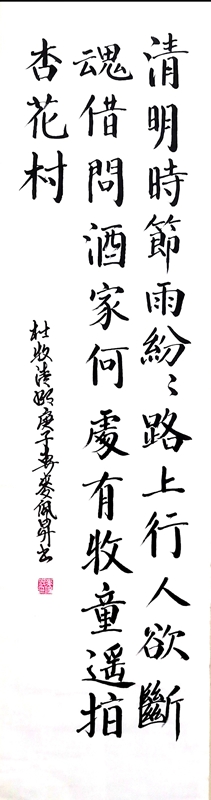 清明時節雨紛〻路上行人欲斷
魂借問酒家何處有牧童遥指
杏花村
杜牧清明庚子春麥佩昇书